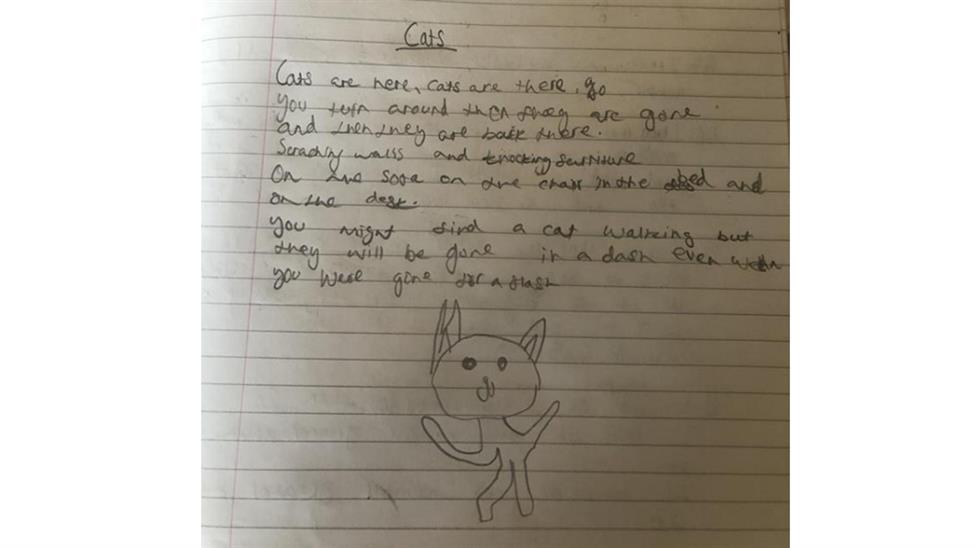 Cats
Cats are here, cats are there, go
You turn around then they are gone
and then they are back there.
Scraching walls and knocking furniture
On the sofa on the chair in the bed and
on the desk.
You might find a cat walking but
they will be gone in a dash even when
you were gone for a flash